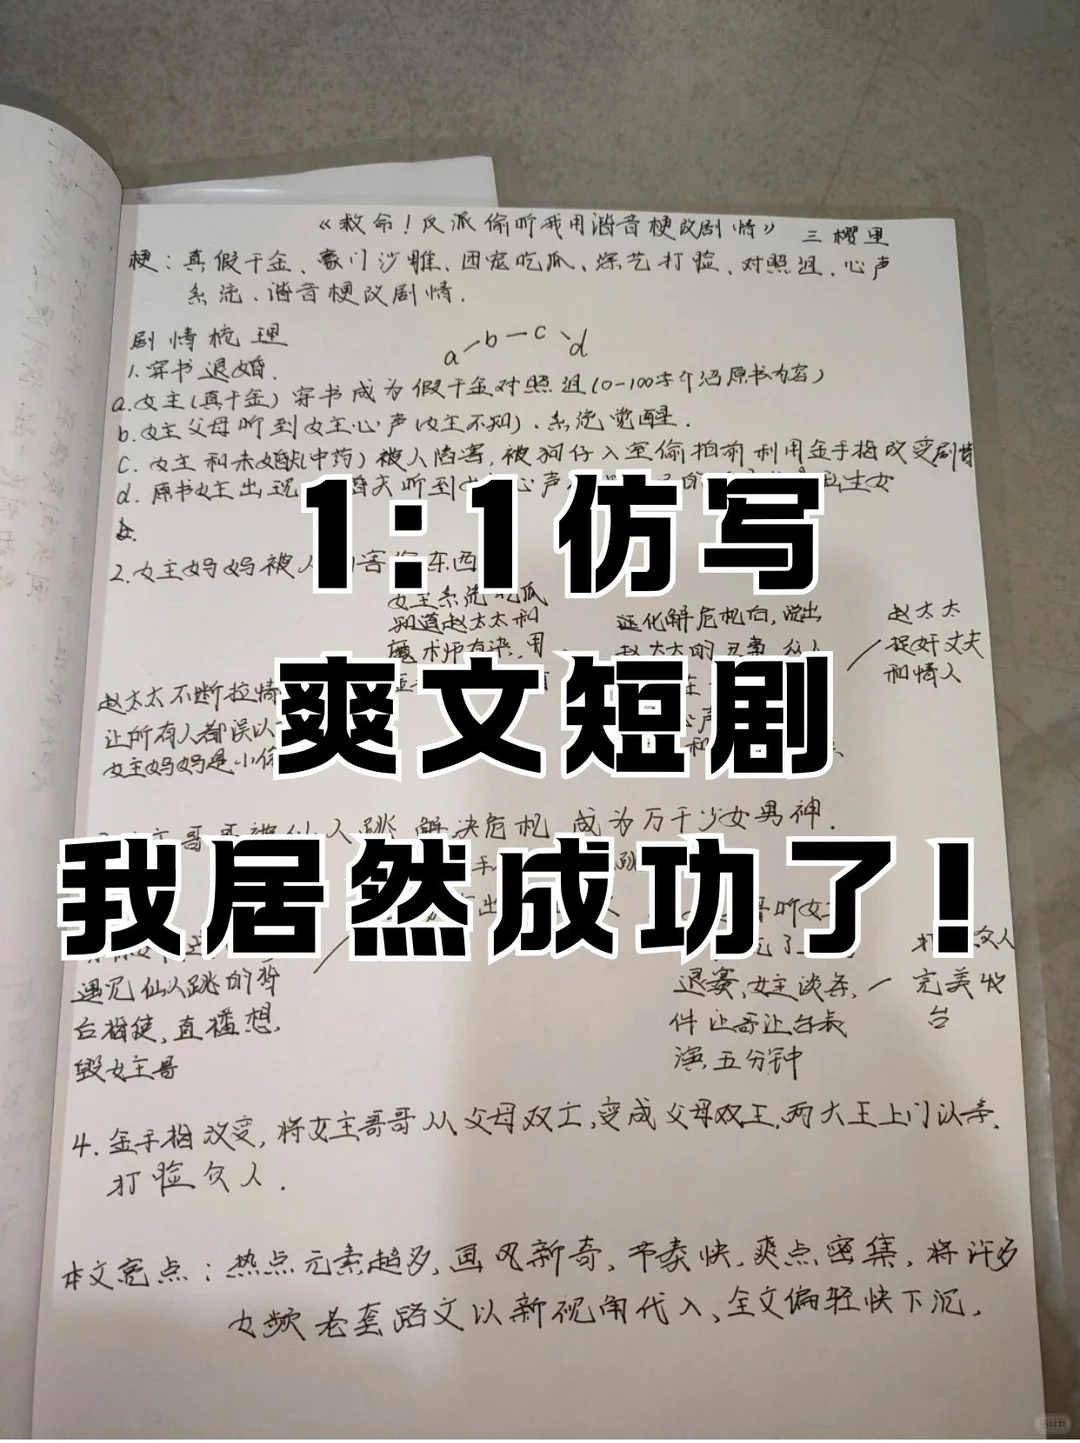 《救命！反派偷听我用谐音梗改剧情》 三樱里
梗：真假千金、豪门沙雕、团宠吃瓜、综艺打脸、对照组、心声
系统、谐音梗改剧情.
剧情梳理
a b c d
1.穿书退婚.
a.女主(真千金)穿书成为假千金对照组(0-100字介绍原书内容)
b.女主父母听到女主心声(女主不知)、系统觉醒.
c.女主和未婚夫(中药)被人陷害,被狗仔入室偷拍前利用金手指改变剧情
d.原书女主出现 婚夫听到女 心声 生女
主.
1:1仿写
2.女主妈妈被人 害偷东西
女主系统吃瓜
知道赵太太和
魔术师有染,用
逐化解危机后,说出
赵太太的
赵太太
捉奸丈夫
和情人
赵太太不断拉情
让所有人都误以
女主妈妈是小偷
心声
爽文短剧
哥哥被仙人跳 解决危机 成为万千少女男神.
我居然成功了！
遇见仙人跳的背
台指使,直播想
毁女主哥
哥听女
退赛,女主谈条
件让哥让台表
演五分钟
众人
完美收
台
4.金手指改变,将女主哥哥从父母双亡,变成父母双王,两大王上门认亲.
打脸众人.
本文亮点：热点元素超多,画风新奇,节奏快,爽点密集,将许多
女频老套路文以新视角代入、全文偏轻快下沉.